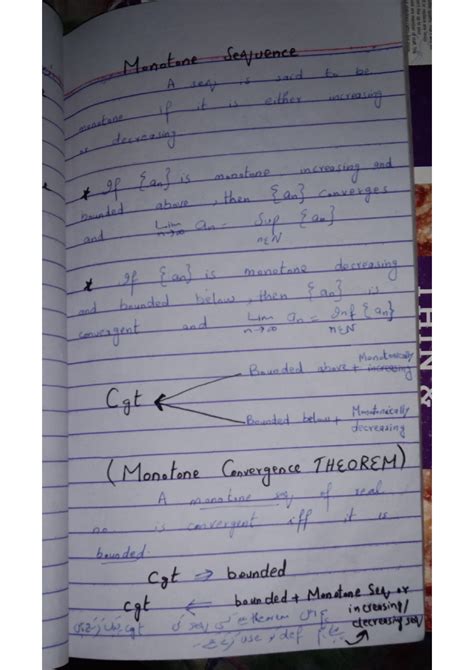 Monotone Sequence
A seq is said to be
monotone if it is either increasing
or decreasing
* If {an} is monotone increasing and
bounded above, then {an} converges
and Lim n→∞ an = Sup n∈N {an}
* If {an} is monotone decreasing
and bounded below, then {an} is
convergent and Lim n→∞ an = Inf n∈N {an}
Bounded above + Monotonically increasing
Cgt
Bounded below + Monotonically decreasing
(Monotone Convergence THEOREM)
A monotone seq of real
no. is convergent iff it is
bounded.
Cgt → bounded
cgt ← bounded + Monotone Seq or
increasing/
decreasing seq
cgt seq theorem
use def
THIN &